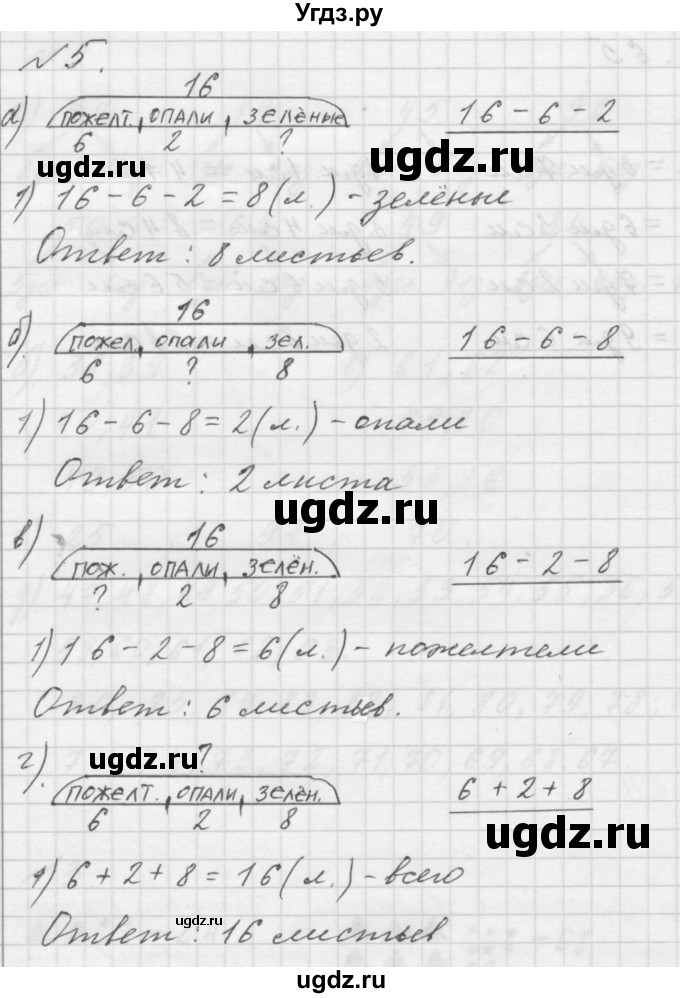 Угдз.ру
№ 5.
16
а) пожелт. опали, зелёные 16 - 6 - 2
6 2 ?
ugdz.ru ugdz.ru
1) 16 - 6 - 2 = 8 (л.) - зелёные
Ответ: 8 листьев.
16
б) пожел. опали, зел. 16 - 6 - 8
6 ? 8
1) 16 - 6 - 8 = 2 (л.) - опали
Ответ: 2 листа
ugdz.ru
16
в) пож. опали, зелён. 16 - 2 - 8
? 2 8
1) 16 - 2 - 8 = 6 (л.) - пожелтели
Ответ: 6 листьев.
ugdz.ru
?
г) пожелт. опали, зелён. 6 + 2 + 8
6 2 8
ugdz.ru
1) 6 + 2 + 8 = 16 (л.) - всего
ugdz.ru
Ответ: 16 листьев
ugdz.ru